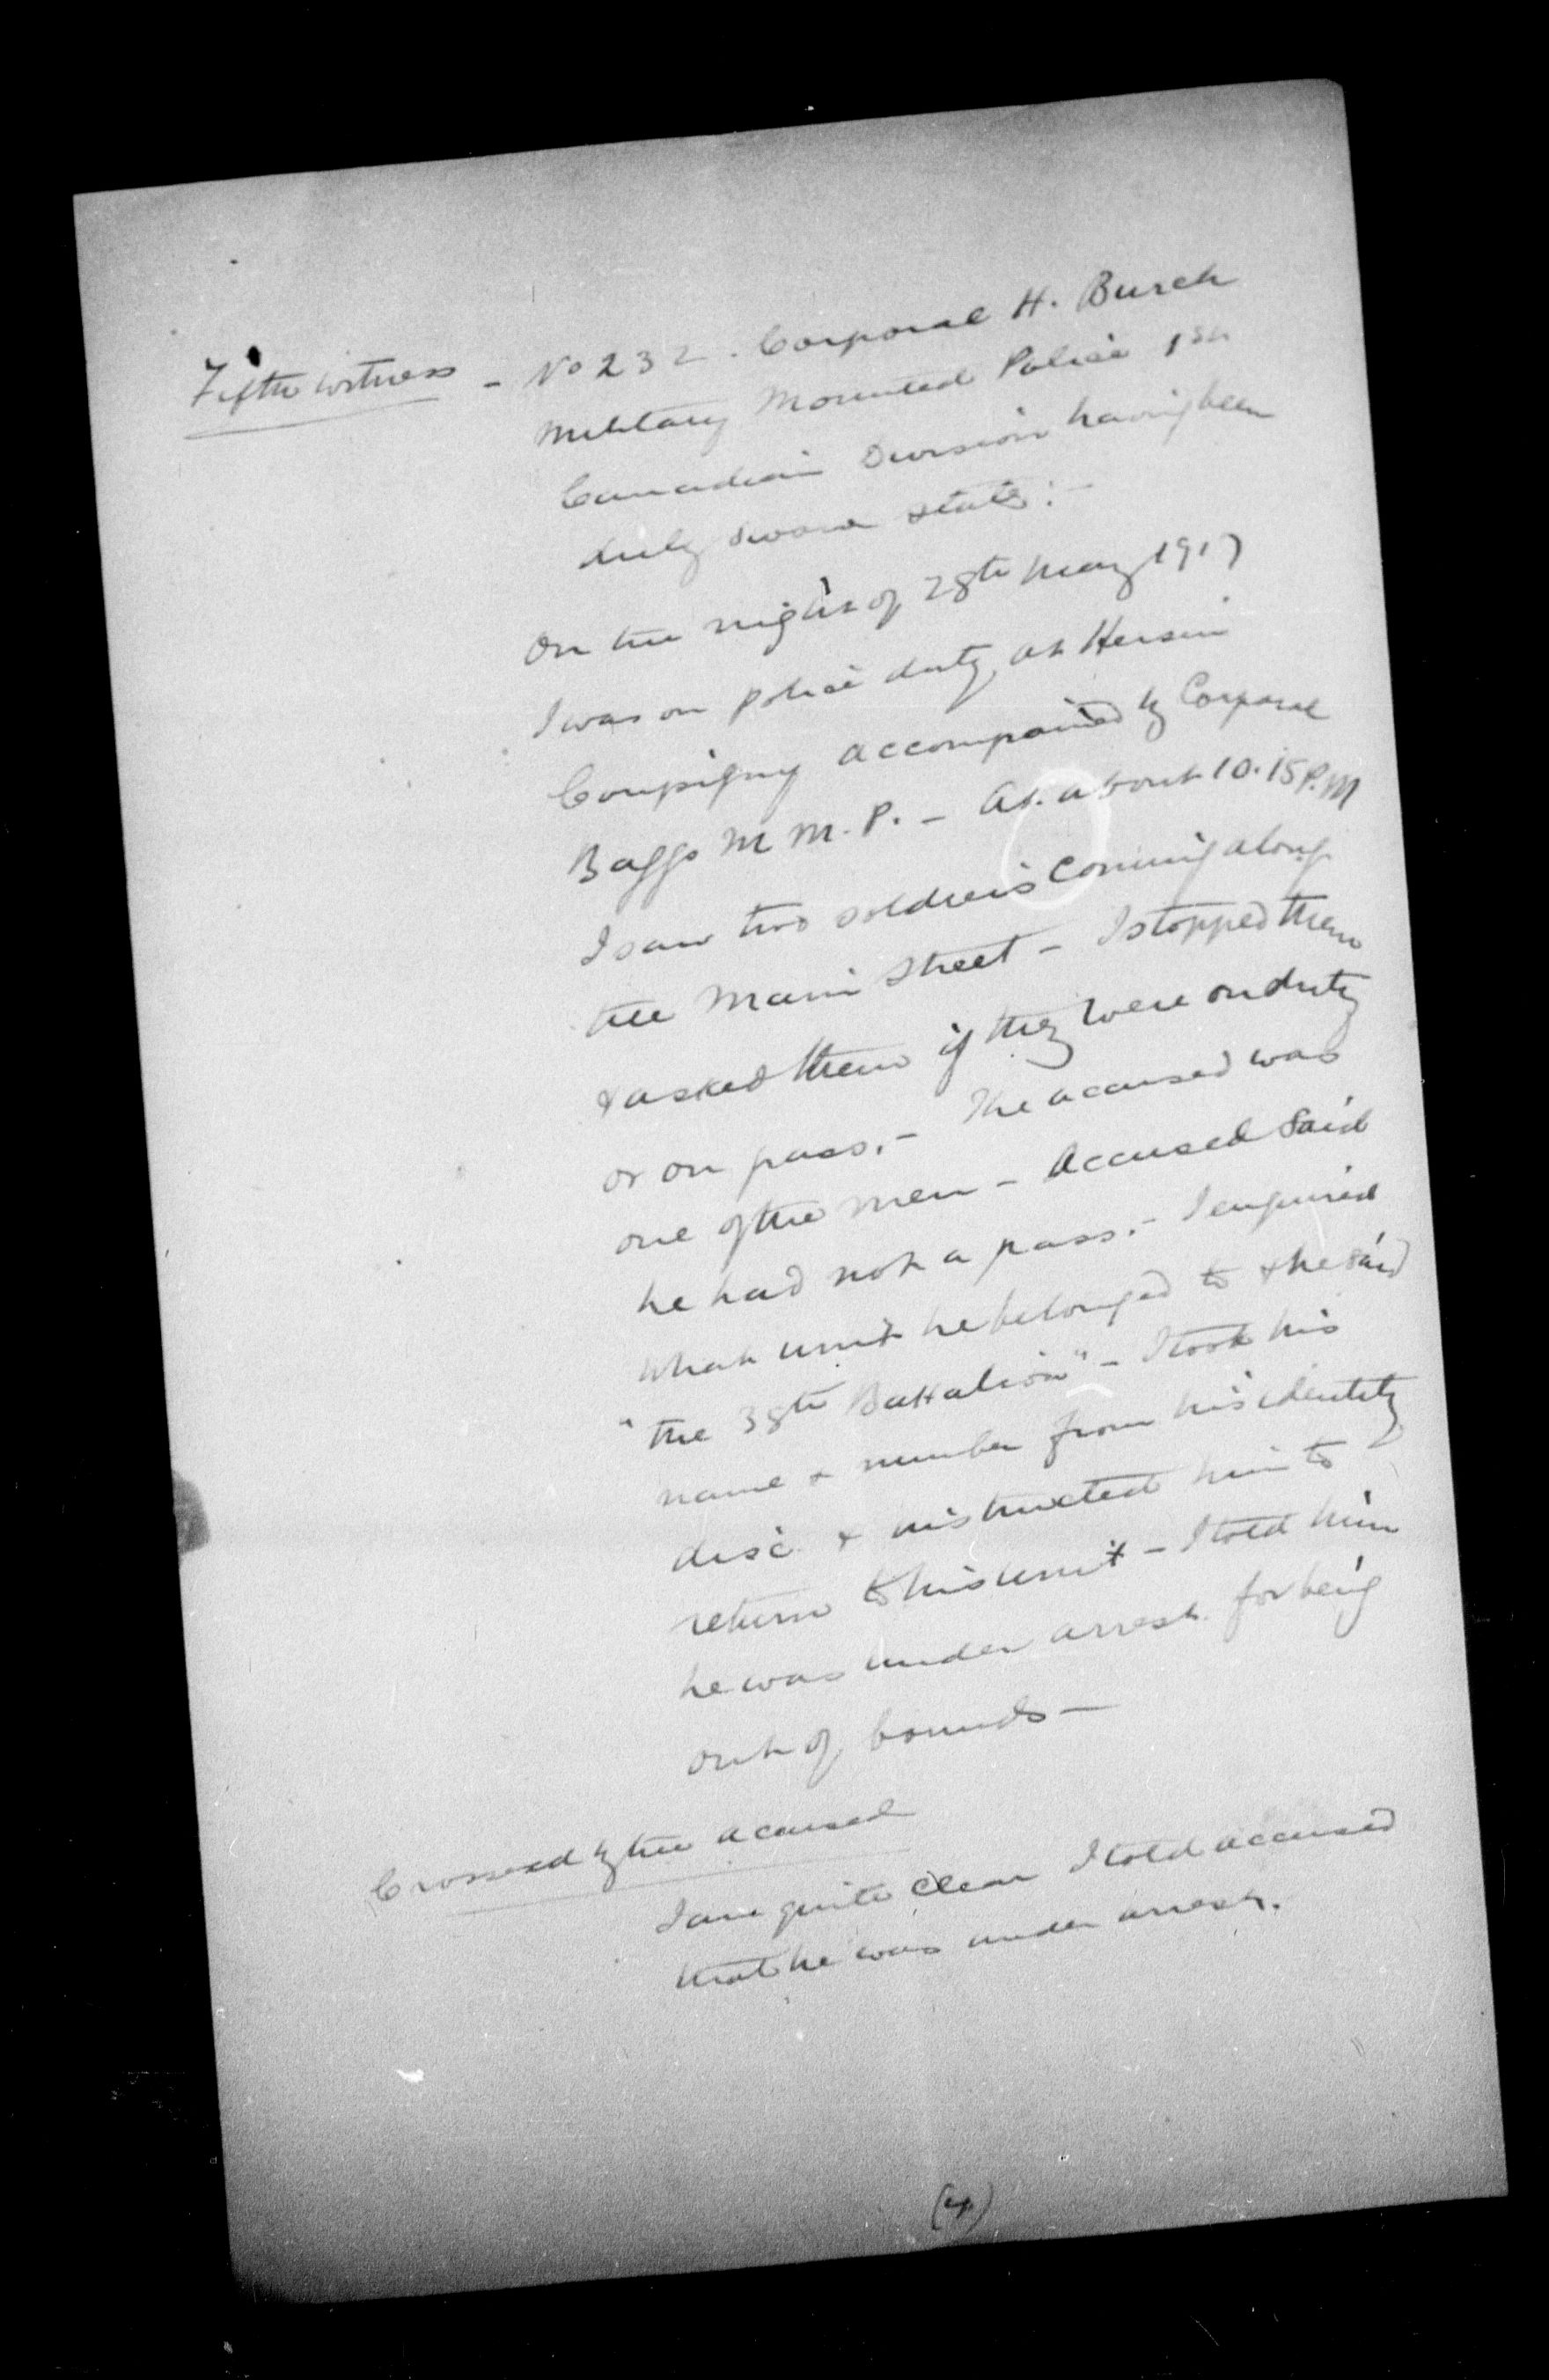 Fifth witness - No 232. Corporal H. Burch
Military Mounted Police 1st
Canadian Division having been
duly sworn states:-
On the night of 28th May 1917
I was on police duty, at Hersin
Coupigny accompanied by Corporal
Baggs M M. P. - At about 10.15 P.M
I saw two soldiers coming along
the Main Street - I stopped them
& asked them if they were on duty
or on pass. - The accused was
one of the men - Accused said
he had not a pass. - I enquired
what unit he belonged to & he said
"the 38th Battalion" - I took his
name & number from his identity
disc & instructed him to
return to his unit - I told him
he was under arrest for being
out of bounds -
Crossexd by the accused
I am quite clear I told accused
that he was under arrest.